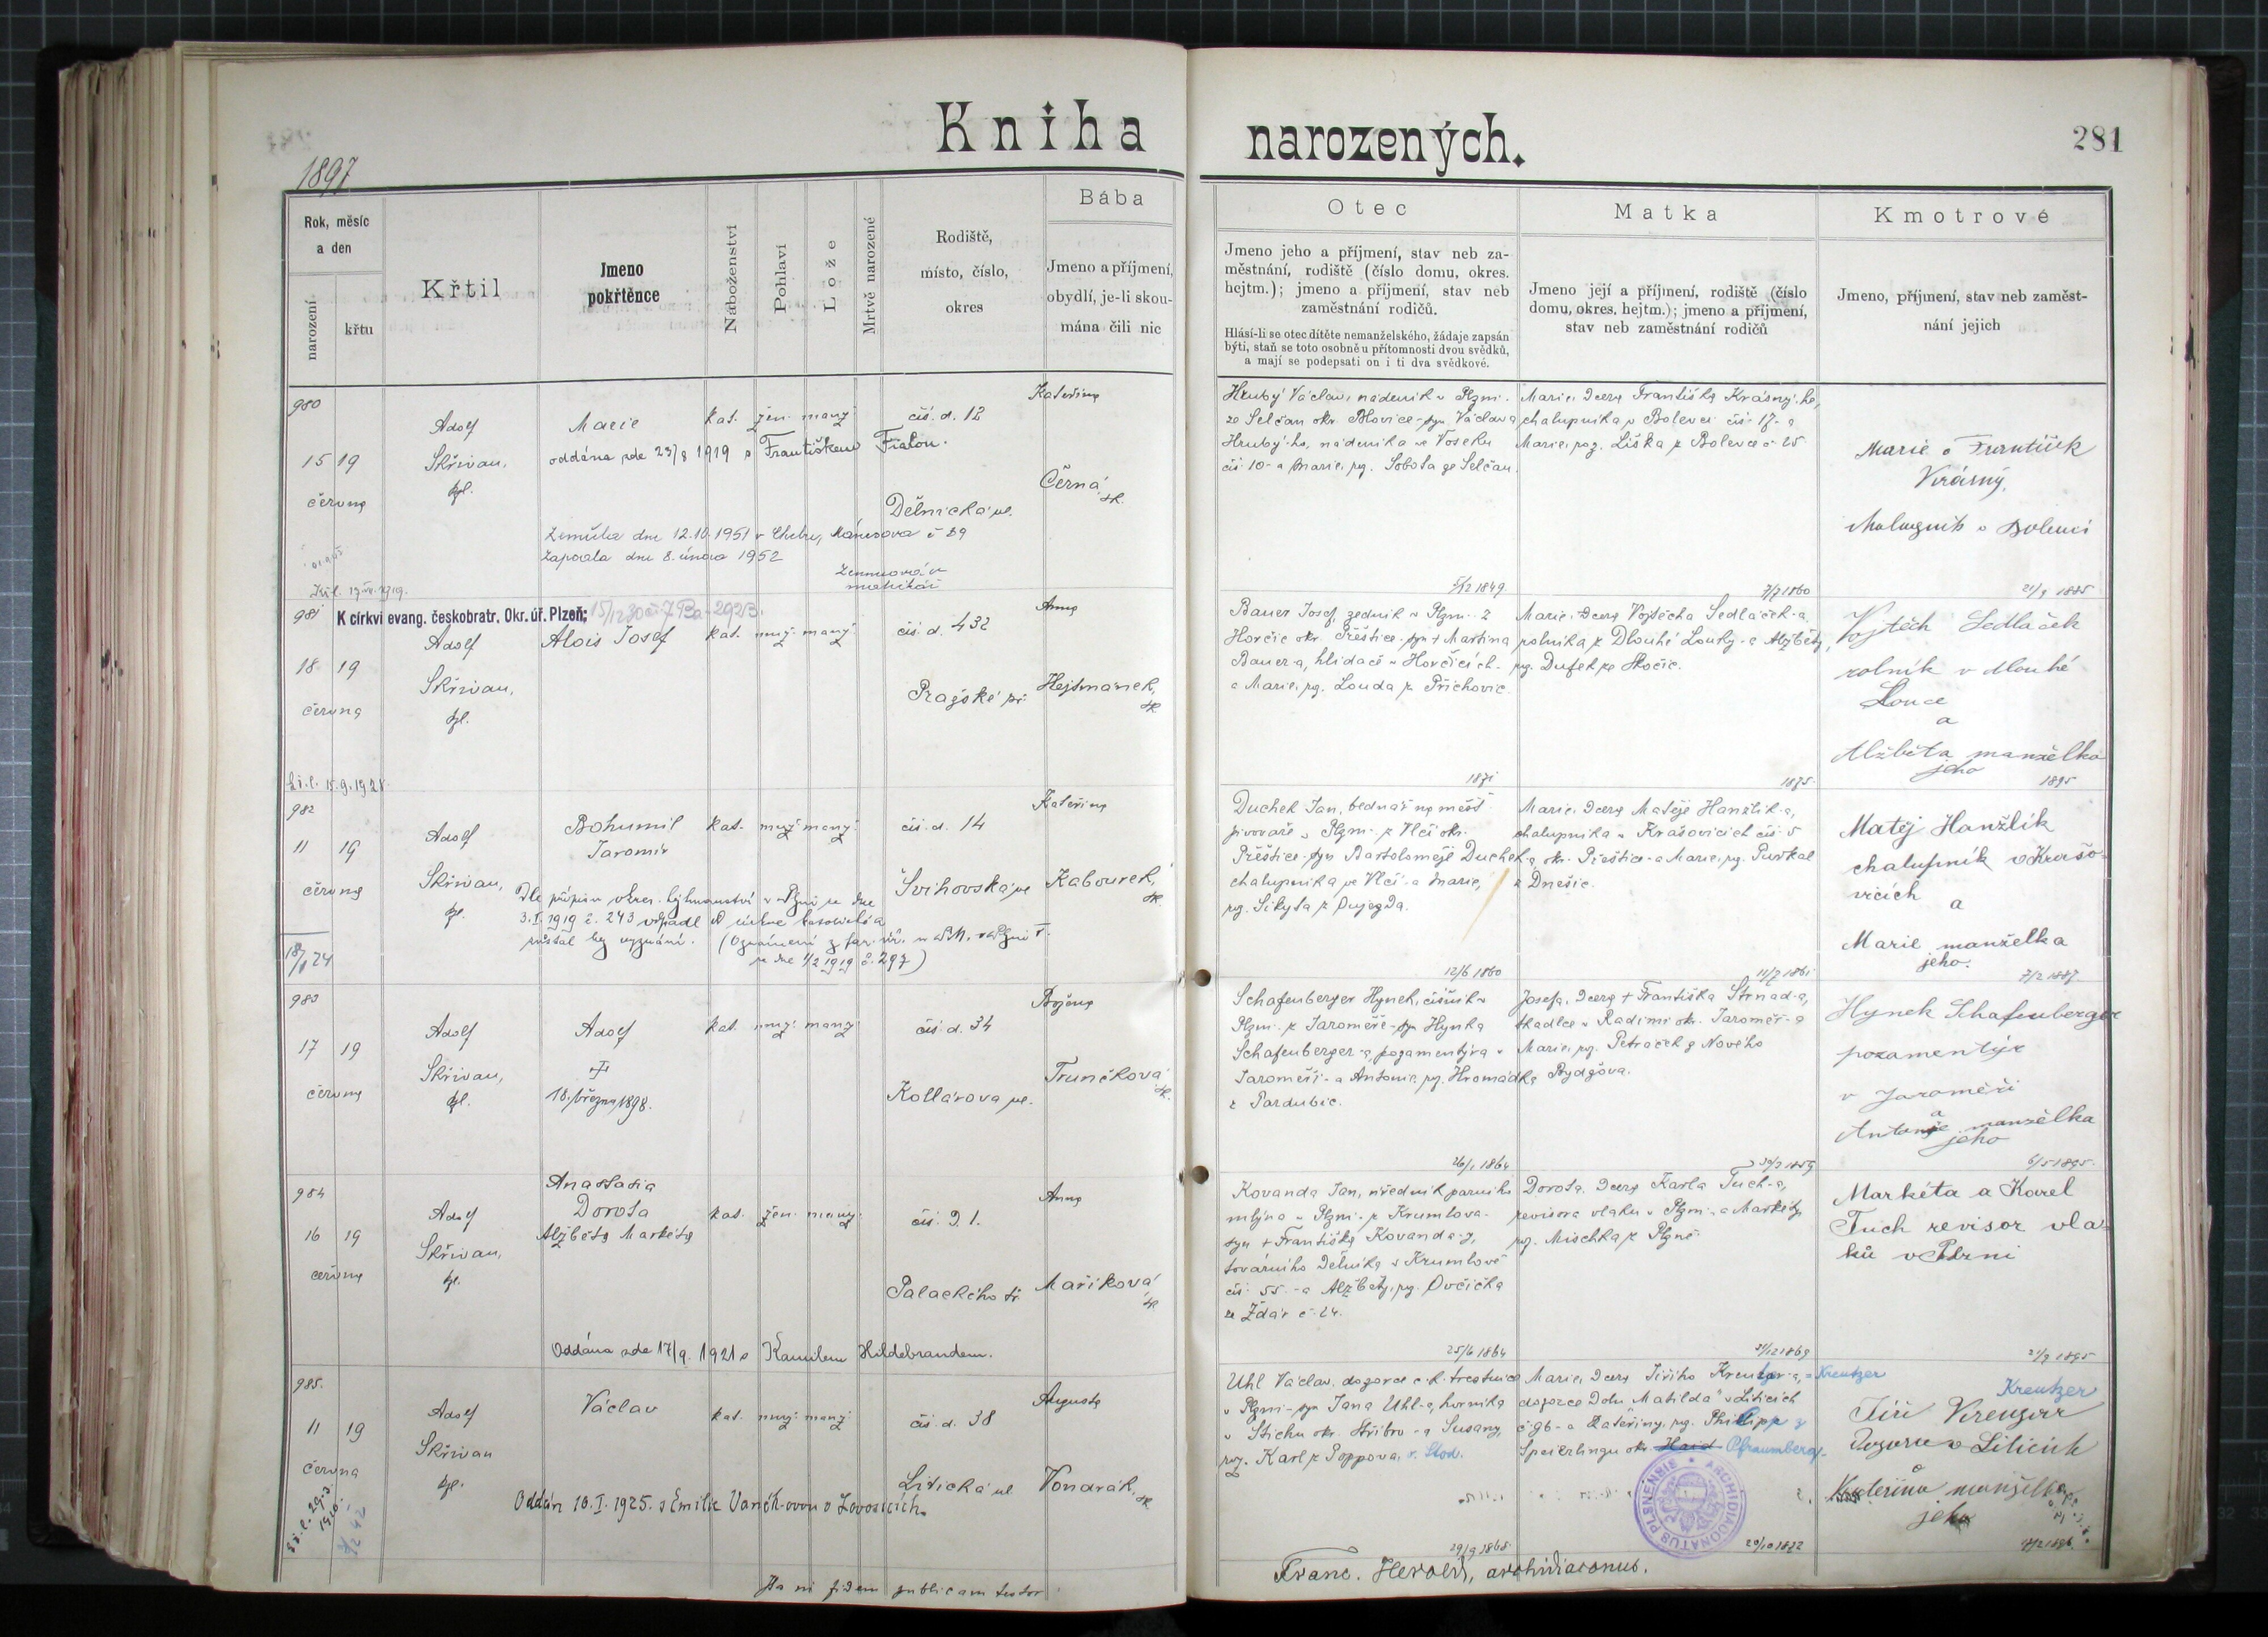 Kniha narozených.
281
1897
Rok, měsíc
a den
narození
křtu
Křtil
Jmeno
pokřtěnce
Náboženství
Pohlaví
Lože
Mrtvě narozené
Rodiště,
místo, číslo,
okres
Bába
Jmeno a příjmení,
obydlí, je-li skou-
mána čili nic
Otec
Jmeno jeho a příjmení, stav neb za-
městnání, rodiště (číslo domu, okres.
hejtm.); jmeno a příjmení, stav neb
zaměstnání rodičů.
Hlásí-li se otec dítěte nemanželského, žádaje zapsán
býti, staň se toto osobně u přítomnosti dvou svědků,
a mají se podepsati on i ti dva svědkové.
Matka
Jmeno její a příjmení, rodiště (číslo
domu, okres. hejtm.); jmeno a příjmení,
stav neb zaměstnání rodičů
Kmotrové
Jmeno, příjmení, stav neb zaměst-
nání jejich
980
15 19
června
Adolf
Skřivan,
kpl.
Marie
kat. žen. manž.
oddána zde 23/8 1919 s Františkem Fialou.
čís. d. 12
Dělnická ul.
Kateřina
Černá,
zk.
Zemřela dne 12.10.1951 v Chebu, Mánesova č 29
Zapsala dne 8. února 1952
Hrubý Václav, nádeník v Plzni
ze Selčan okr. Blovice - syn Václava
Hrubý-ho, nádeníka ve Voseku
čís. 10 - a Marie, roz. Sobota ze Selčan.
5/12 1849
Marie, dcera Františka Krásný-ho,
chalupníka v Bolevci čís. 17 - a
Marie, roz. Liška z Bolevce č. 25
7/7 1860
Marie a František
Krásný,
21/9 1885
981
K církvi evang. českobratr. Okr. úř. Plzeň;
18 19
června
Adolf
Skřivan,
kpl.
Alois Josef
kat. muž. manž.
čís. d. 432
Pražské př.
Anna
Hejtmánek,
zk.
Bauer Josef, zedník v Plzni z
Horčic okr. Přeštice - syn + Martina
Bauer-a, hlídače v Horčicích -
a Marie, roz. Louda z Příchovic.
1871
Marie, dcera Vojtěcha Sedláček-a,
rolníka z Dlouhé Louky - a Alžběty,
roz. Dufek ze Skočic.
1875
Vojtěch Sedláček
rolník v dlouhé
Louce
a
Alžběta manželka
jeho
1895
982
11 19
června
Adolf
Skřivan,
kpl.
Bohumil
Jaromír
kat. muž. manž.
čís. d. 14
Švihovská ul.
Kateřina
Kabourek,
zk.
Dle přípisu okres. hejtmanství v Plzni ze dne
3.I.1919 č. 243 vypadl z církve katolické a
zůstal bez vyznání.
Duchek Jan, bednář na měšť.
pivovaře v Plzni - z Vlčí okr.
Přeštice - syn Bartoloměje Duchek-a
chalupníka ve Vlčí - a Marie,
roz. Sikyta z Pujezda.
12/6 1860
Marie, dcera Matěje Hanzlík-a,
chalupníka v Krašovicích čís. 5
okr. Přeštice - a Marie, roz. Purkal
z Dnešic.
11/7 1861
Matěj Hanžlík
chalupník v Krašo-
vicích
a
Marie manželka
jeho.
7/2 1887
983
17 19
června
Adolf
Skřivan,
kpl.
Adolf
18. března 1898.
kat. muž. manž.
čís. d. 34
Kollárova ul.
Božena
Trunčková
zk.
Schafenberger Hynek, číšník v
Plzni - z Jaroměře - syn Hynka
Schafenberger-a, pozamentýra v
Jaroměři - a Antonie, roz. Hromádka
z Pardubic.
26/1 1864
Josefa, dcera + Františka Strnad-a,
tkadlce v Radimi okr. Jaroměř - a
Marie, roz. Petráček z Nového
Bydžova.
Hynek Schafenberger
pozamentýr
v Jaroměři
a
Antonie manželka
jeho
6/5 1895
984
16 19
června
Adolf
Skřivan,
kpl.
Anastasia
Dorota
Alžběta Markéta
kat. žen. manž.
čís. d. 1.
Palackého tř.
Anna
Maříková
zk.
Oddána zde 17/9. 1921 s Kamilem Hildebrandem.
Kovanda Jan, úředník parního
mlýna v Plzni - z Krumlova -
syn + Františka Kovanda-y,
továrního dělníka v Krumlově
čís. 55. - a Alžběty, roz. Ovčička
ze Ždár č. 24.
25/6 1864
Dorota, dcera Karla Tuch-a,
revisora vlaku v Plzni - a Markéty
roz. Mischka z Plzně.
Markéta a Karel
Tuch revisor vla-
ků v Plzni
21/9 1895
985.
11 19
června
Adolf
Skřivan
kpl.
Václav
kat. muž. manž.
čís. d. 38
Litická ul.
Augusta
Vondrák,
zk.
Oddán 10.I.1925. s Emilií Vaněk-ovou v Lovosicích.
Uhl Václav, dozorce c.k. trestnice
v Plzni - syn Jana Uhl-a, horníka
okr. Stříbro - a Susany,
roz. Karl z Poppova,
29/9 1868
Marie, dcera Jiřího Kreutzer-a, = Kreutzer
dozorce dolu "Matilda" v Liticích
č. 96 - a Kateřiny, roz. Philipp z
Speierlingu okr. Haid Pfraumberg.
Kreutzer
Jiří Kreuzer
Kateřina manželka
jeho
ARCHIDIACONATUS PLSNENSIS
In fidem publicam testor
Franc. Herold, archidiaconus.